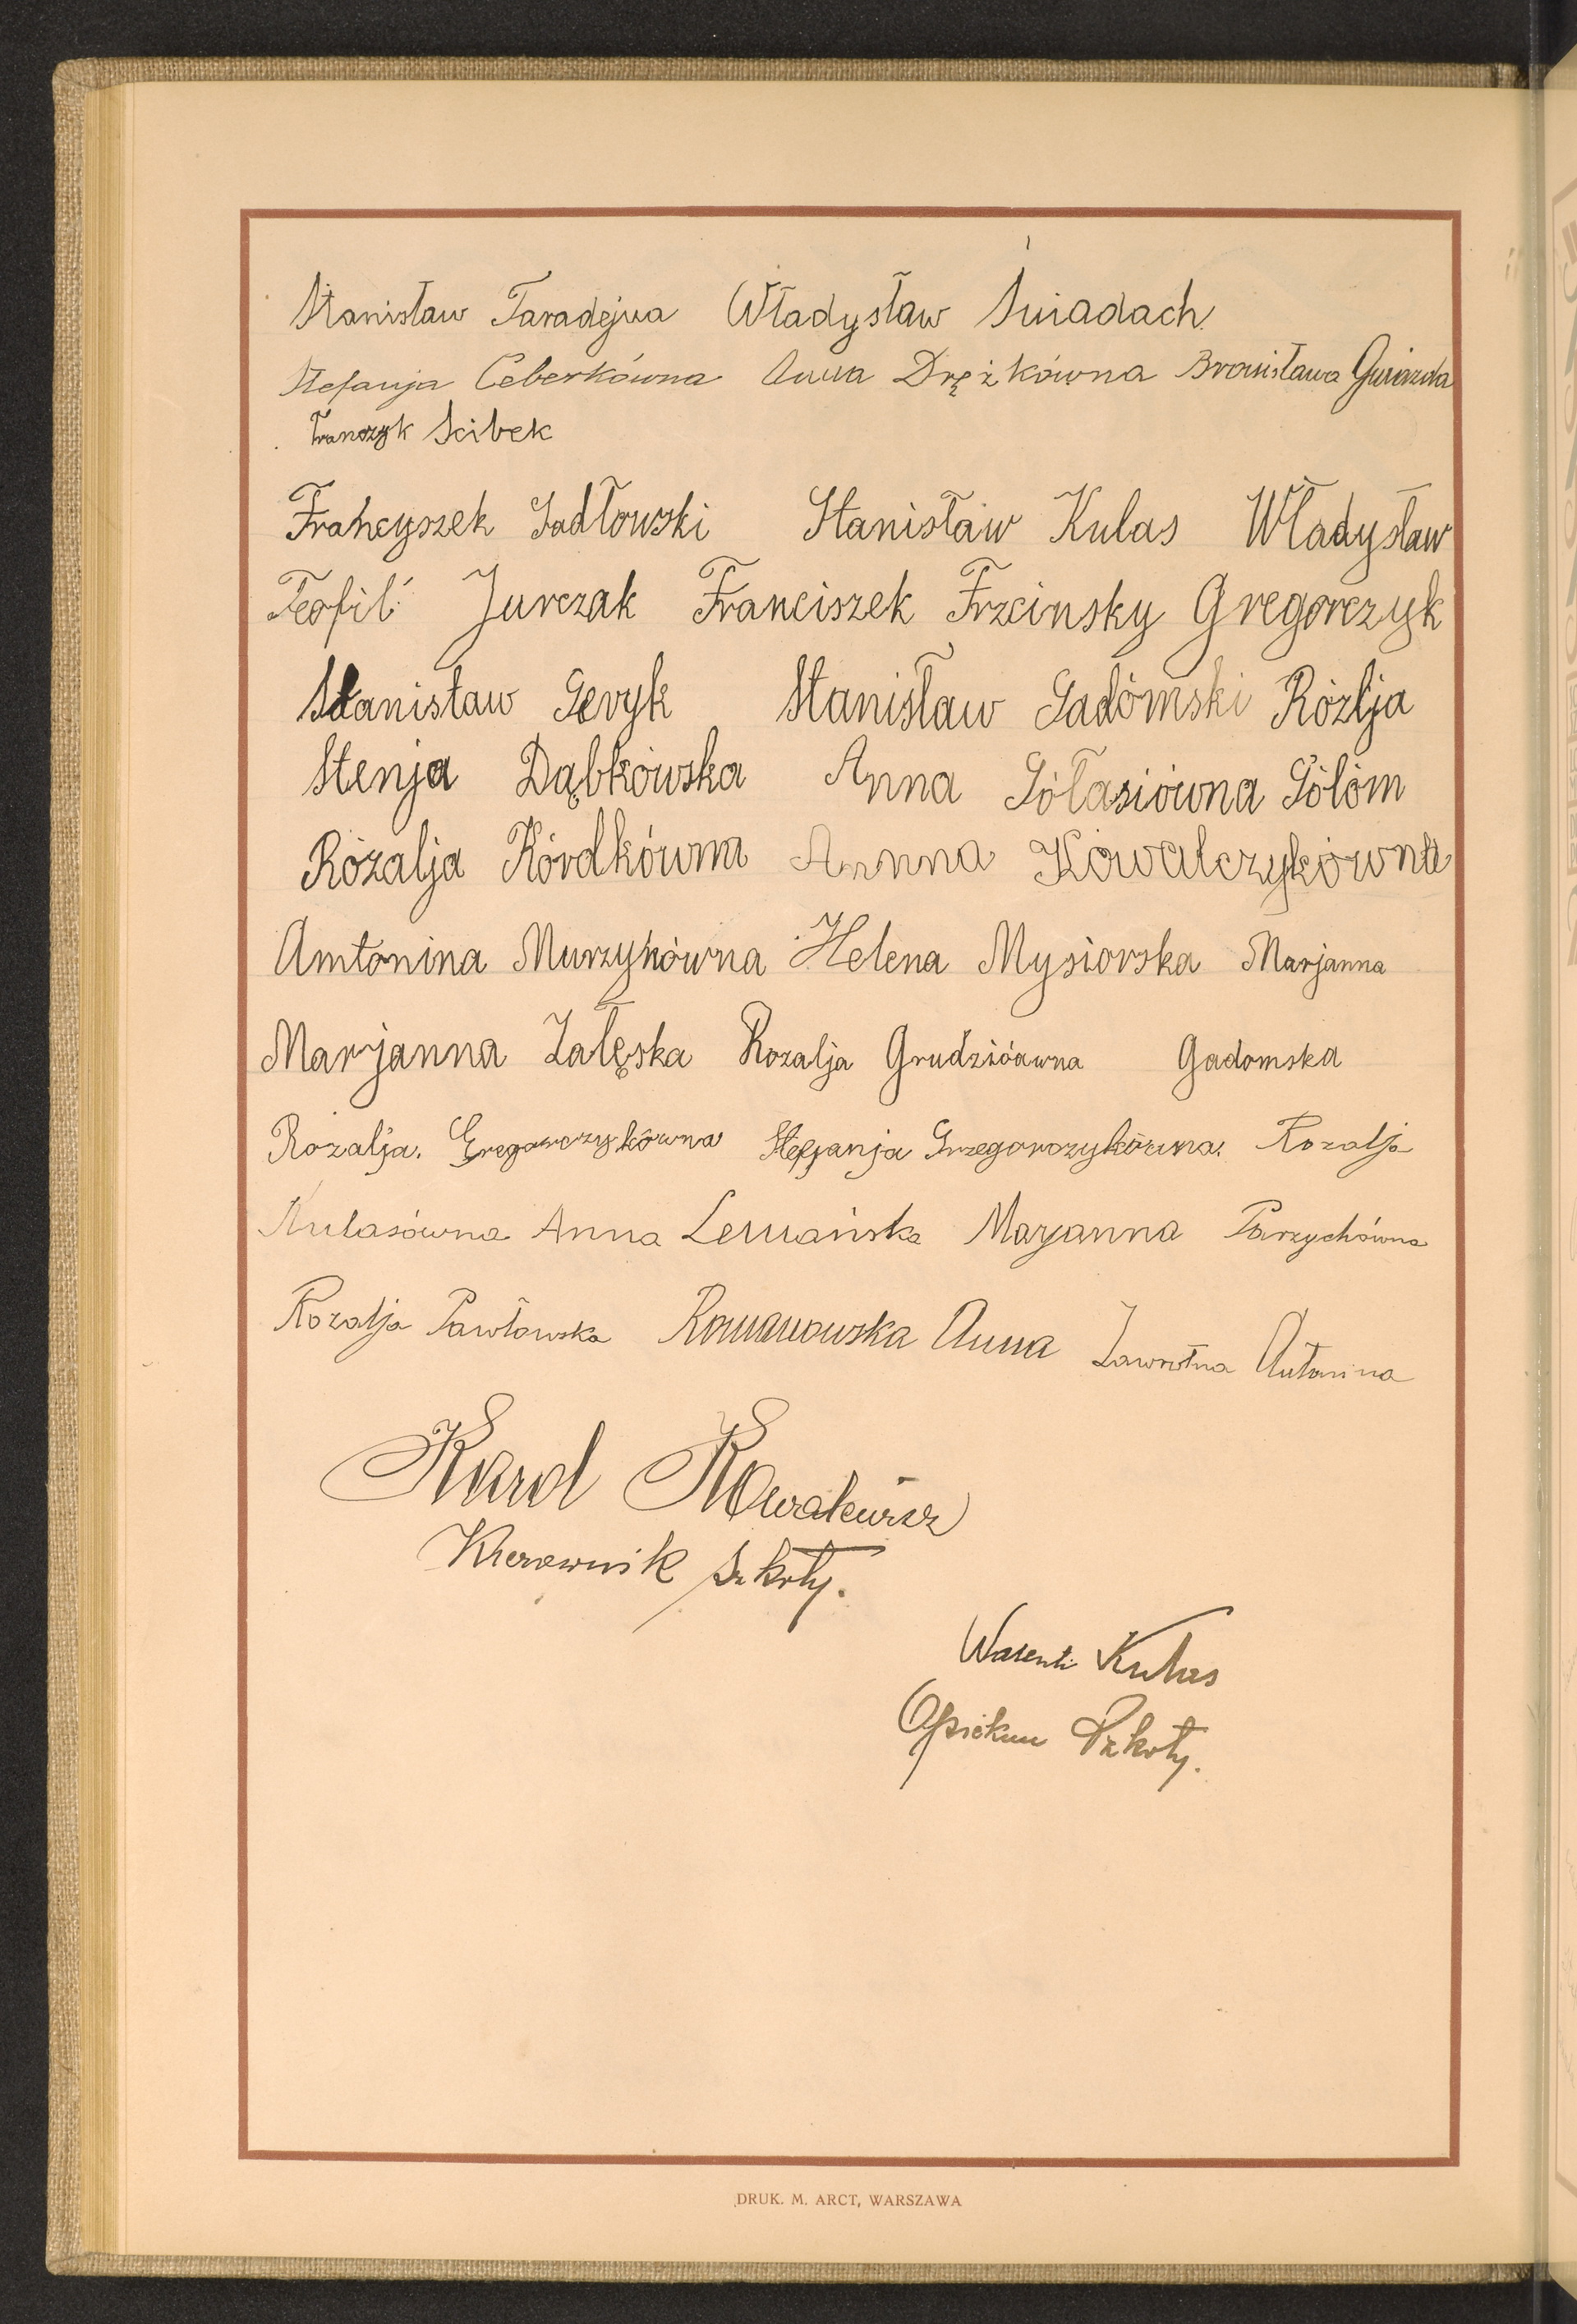 Stanisław Taradejna Władysław Świadach
Stefanja Ceberkówna Anna Drężkówna Bronisława Gwiazda
Franczyk Scibek
Francyszek Sadłowski Stanisław Kulas Władysław
Teofil Jurczak Franciszek Frzcinsky Gregorczyk
Stanisław Geryk Stanisław Gadómski Rózlja
Stenja Dąbkówska Anna Gółasiówna Gólóm
Rózalja Kórdkówna Annna Kówalczykówna
Amtonina Murzynówna Helena Mysiorska Marjanna
Marjanna Załęska Rozalja Grudzióawna Gadomska
Rozalja. Gregorczykówna Stefjanja Grzegorczykówna. Rozalja
Kulasówna Anna Lemańska Maryanna Parzychówna
Rozalja Pawłowska Romanowska Anna Zawrotna Antonina
Karol Kowalewicz
Kierownik Szkoły.
Walenti Kulas
Opiekun Szkoły.
DRUK. M. ARCT, WARSZAWA